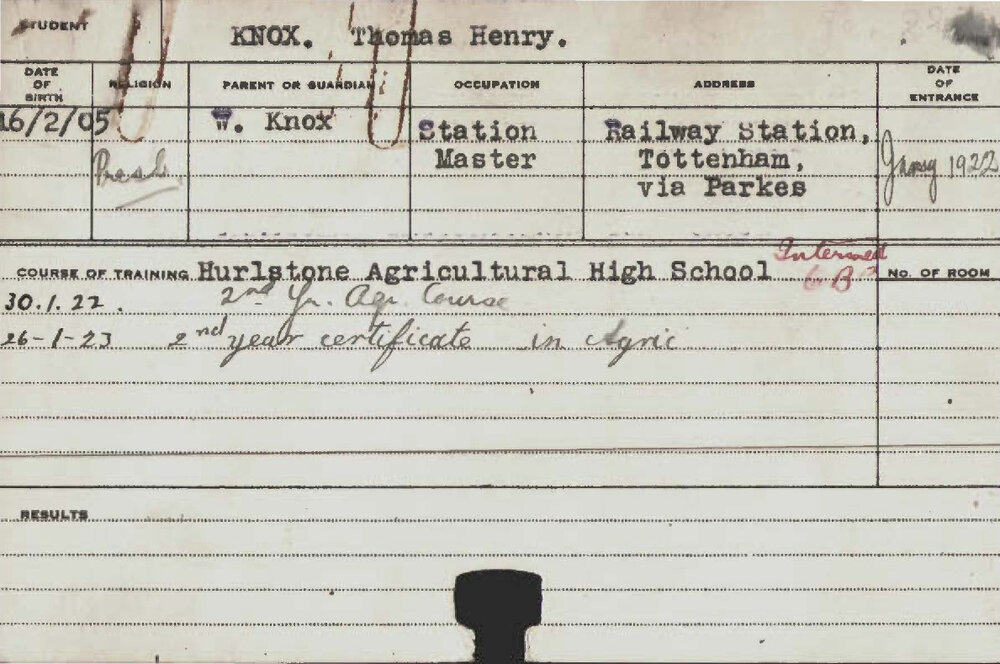 STUDENT KNOX. Thomas Henry.
DATE OF BIRTH RELIGION PARENT OR GUARDIAN OCCUPATION ADDRESS DATE OF ENTRANCE
16/2/05 W. Knox Station Railway Station,
Presb. Master Tottenham, Jany 1922
via Parkes
COURSE OF TRAINING Hurlstone Agricultural High School Intermed NO. OF ROOM
30.1.22. 2nd Yr. Agr. Course 6 B
26-1-23 2nd year certificate in Agric
RESULTS